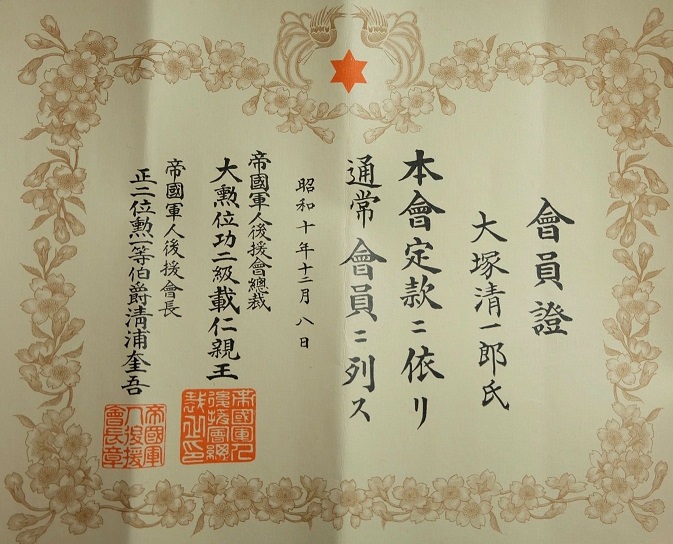 會員證
大塚清一郎氏
本會定款ニ依リ
通常會員ニ列ス
昭和十年十二月八日
帝國軍人後援會總裁
大勲位功二級載仁親王
帝國軍人後援會長
正二位勲一等伯爵清浦奎吾
帝國軍人後援會總裁之印
帝國軍人後援會長章